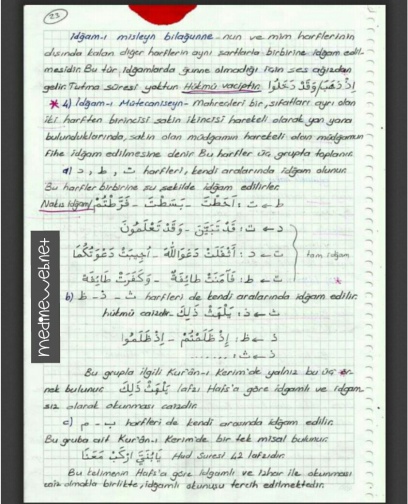 23
İdğam-ı misleyn bilağunne - nun ve mim harflerinin
dışında kalan diğer harflerin aynı şartlarla birbirine idğam edil-
mesidir. Bu tür idğamlarda ğunne olmadığı için ses ağızdan
gelir. Tutma süresi yoktur. Hükmü vaciptir. اِذْ ذَهَبَ وَقَدْ دَخَلُوا
* 4) İdğam-ı Mütecaniseyn - Mahrecleri bir, sıfatları ayrı olan
iki harften birincisi sakin ikincisi harekeli olarak yan yana
bulunduklarında, sakin olan müdğamın harekeli olan müdğamun
fihe idğam edilmesine denir. Bu harfler üç grupta toplanır.
a) ت , د , ط harfleri, kendi aralarında idğam olunur.
Bu harfler birbirine şu şekilde idğam edilirler.
Nakıs idğam ط ← ت : اَحَطْتُ - بَسَطْتَ - فَرَّطْتُمْ
د ← ت : قَدْ تَبَيَّنَ - وَقَدْ تَعْلَمُونَ
ت ← د : اَثْقَلَتْ دَعَوَا اللّٰهَ - اُجِيبَتْ دَعْوَتُكُمَا tam idğam
ت ← ط : فَاٰمَنَتْ طَائِفَةٌ - وَكَفَرَتْ طَائِفَةٌ *
b) ث - ذ - ظ harfleri de kendi aralarında idğam edilir.
hükmü caizdir. ث ← ذ : يَلْهَثْ ذٰلِكَ
ذ ← ظ : اِذْ ظَلَمْتُمْ - اِذْ ظَلَمُوا
ذ ← ث : ......
Bu grupla ilgili Kur'ân-ı Kerim'de yalnız bu üç ör-
nek bulunur. يَلْهَثْ ذٰلِكَ lafzı Hafs'a göre idğamlı ve idğam-
sız olarak okunması caizdir.
c) ب - م harfleri de kendi arasında idğam edilir.
Bu gruba ait Kur'ân-ı Kerim'de bir tek misal bulunur.
يَا بُنَيَّ ارْكَبْ مَعَنَا Hud Suresi 42 lafzıdır.
Bu kelimenin Hafs'a göre idğamlı ve izhar ile okunması
caiz olmakla birlikte, idğamlı okunuşu tercih edilmektedir.
medineweb.net